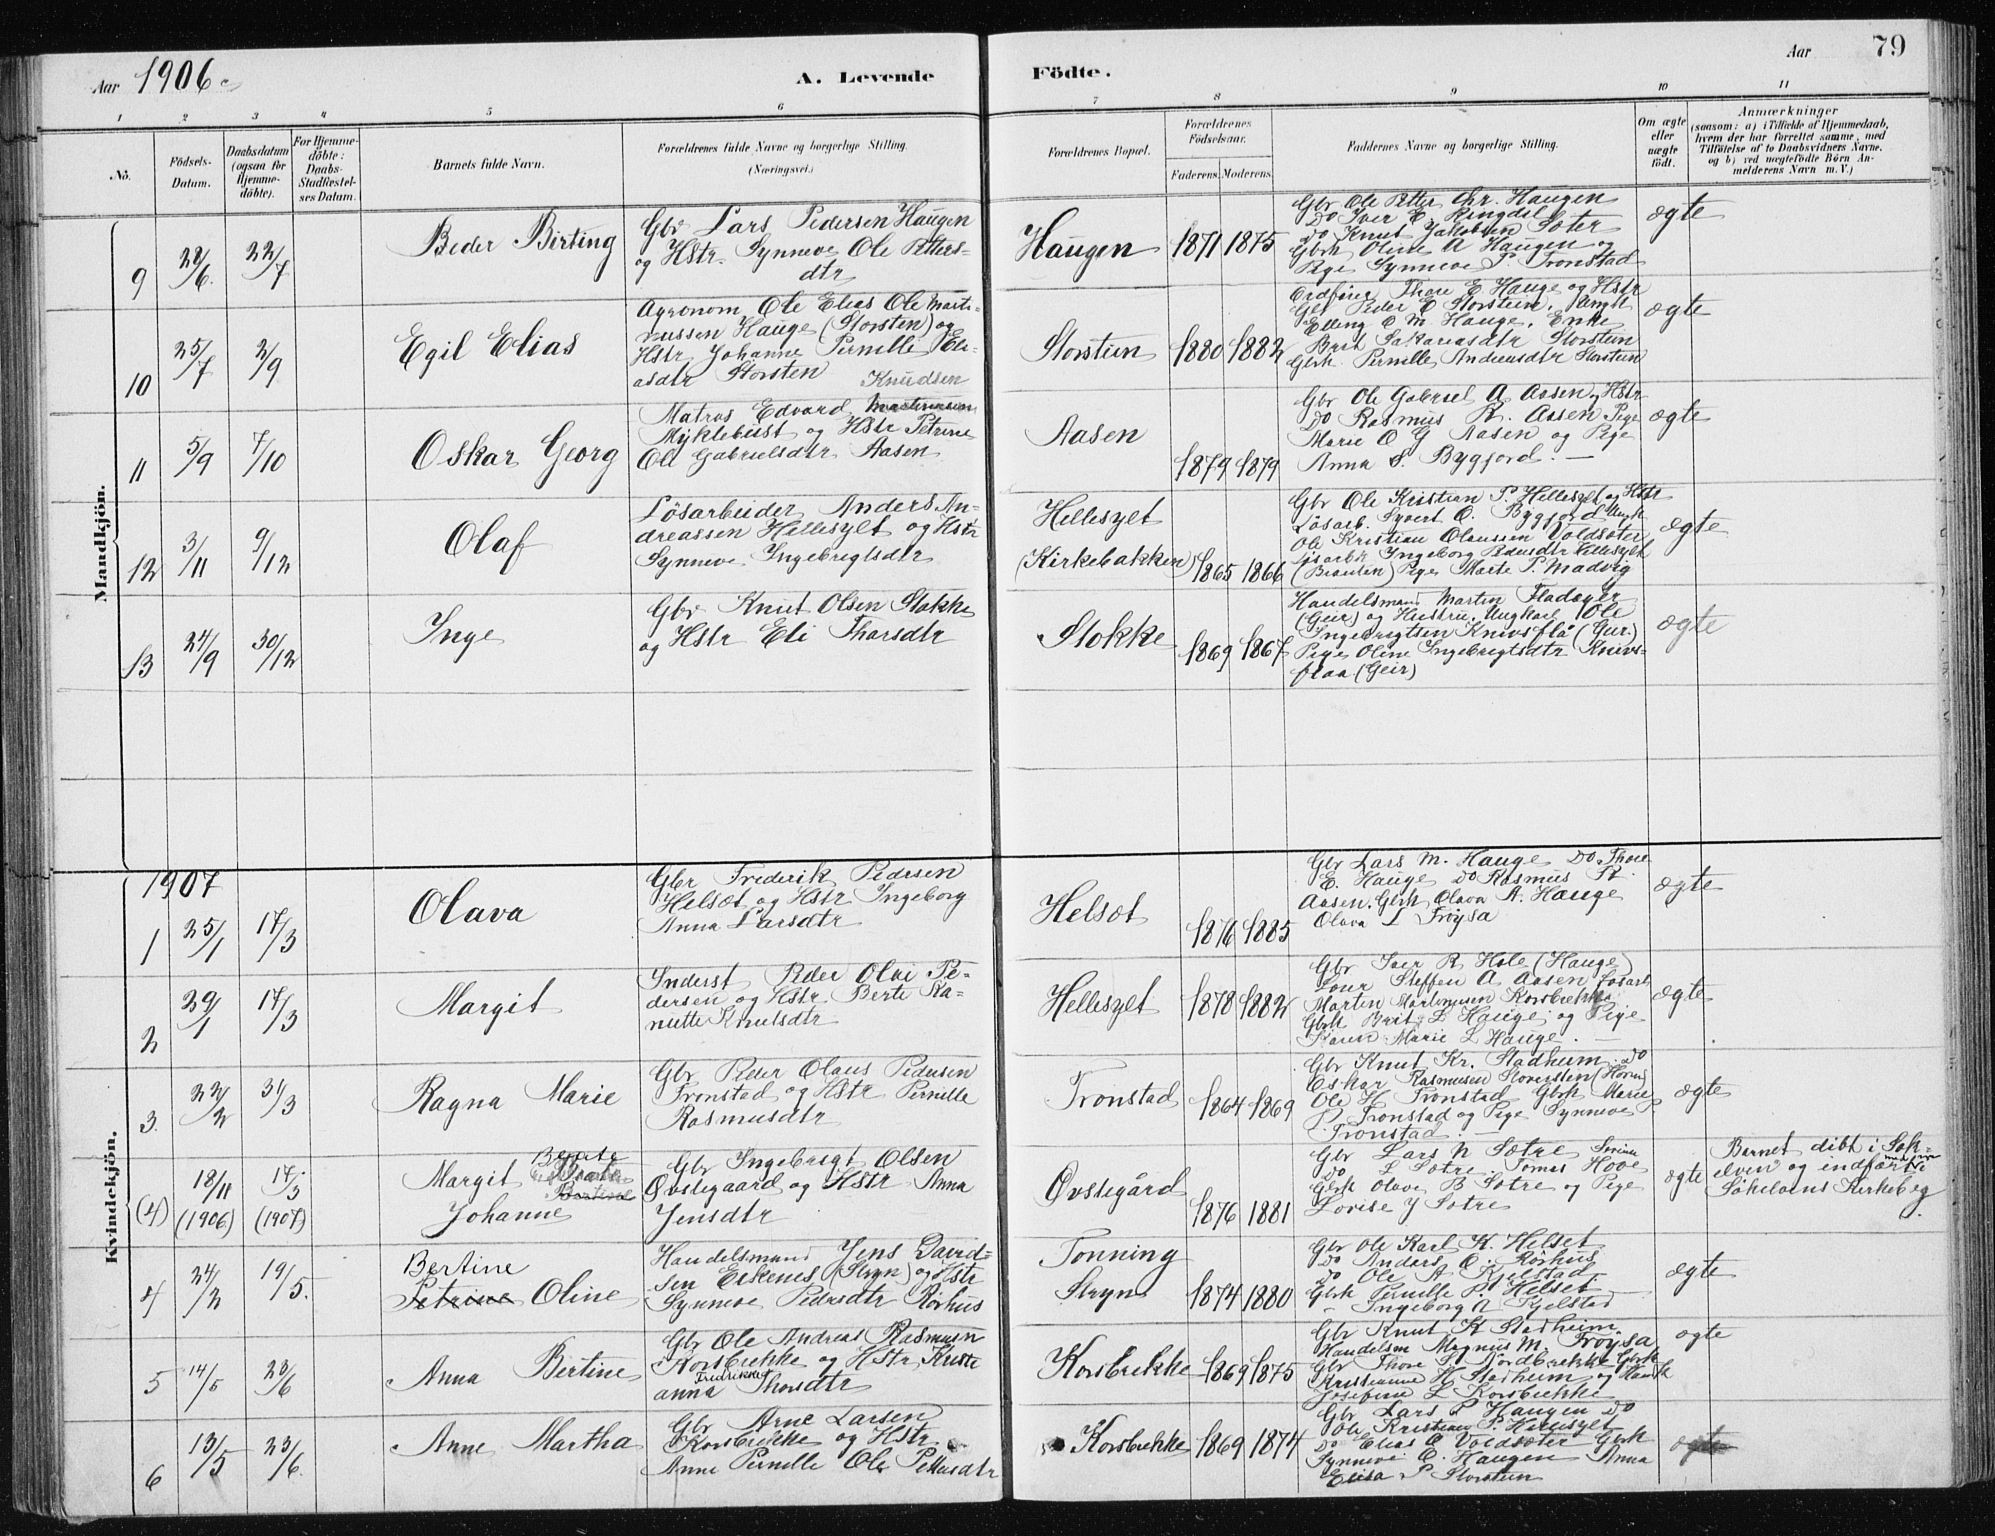 Aar 1906
A. Levende
Födte.
Aar
79
1 2 3 4 5 6 7 8 9 10 11
No.
Födsels-
Datum.
Daabsdatum
(ogsaa for
Hjemme-
döbte).
For Hjemme-
döbte:
Daabs-
Stadfæstel-
ses Datum.
Barnets fulde Navn.
Forældrenes fulde Navne og borgerlige Stilling.
(Næringsvei.)
Forældrenes Bopæl.
Forældrenes
Födselsaar.
Faderens. Moderens.
Faddernes Navne og borgerlige Stilling.
Om ægte
eller
uægte
födt.
Anmærkninger
(saasom: a) i Tilfælde af Hjemmedaab,
hvem der har forrettet samme, med
Tilföielse af to Daabsvidners Navne,
og b) ved uægtefödte Börn An-
melderens Navn m. V.)
Mandkjön.
9
28/6.
22/7
Beder Birting
Gbr Lars Pedersen Haugen
og Hstr. Synneve Ole Petters-
dtr
Haugen
1871 1875
Gbr Ole Petter Chr. Haugen
Do Iver E. Ringdal
Do Knut Jakobsen Sæter
Gbrk Oline A Haugen og
Pige Synneve P. Tronstad
ægte
10
25/7
2/9
Egil Elias
Agronom Ole Elias Ole Marti-
nussen Hauge (Storsten) og
Hstr Johanne Pernille Eli-
asdtr Storsten
Storstein
1880 1882
Ordfører Thore E Hauge og Hstr
Gbr Peder E Storstein, Ungk
Elling O M. Hauge. Enke
Brit Sakariasdtr Storstein
Gbrk. Pernille Andreasdtr Storstein
ægte
11
5/9
7/10
Oskar Georg
Knudsen
Matros Edvard Martinussen
Myklebust og Hstr Petrine
Ole Gabrielsdtr Aasen
Aasen
1879 1879
Gbr Ole Gabriel A Aasen, Hstr
Do Rasmus R. Aasen Pige
Marie O G Aasen og Pige
Anna S. Bygfjord. —
ægte
12
3/11
9/12
Olaf
Løsarbeider Anders An-
dreassen Hellesylt og Hstr
Synneve Ingebregtsdtr
Hellesylt
(Kirkebakken)
1865 1866
Gbr Ole Kristian P. Hellesylt og Hstr
Løsarb. Syvert O. Bygfjord Ungk
Ole Kristian Olaussen Voldsæter
løsarbr Ingeborg Pedersdtr Hellesylt
(Brauten) Pige Marte P. Madvig
ægte
13
24/9
30/12
Inge
Gbr Knut Olsen Stokke
og Hstr Eli Thorsdtr
Stokke
1869 1867
Handelsmand Martin Fladøyer
(Geir) og Hustru. Ungkarl Ole
Ingebregtsen Knivsflå (Geir)
Pige Oline Ingebregtsdtr Knivs-
flaa (Geir)
ægte
Kvindekjön.
1907
1
25/1
17/3
Olava
Gbr Frederik Pedersen
Helsæt og Hstr Ingeborg
Anna Larsdtr
Helsæt
1876 1885
Gbr Lars M. Hauge Do. Thore
E. Hauge Do Rasmus R.
Aasen. Gbrk Olava A. Hauge
Olava L Frøysa
ægte
2
29/1
17/3
Margit
Inderst Peder Olai Pe-
dersen og Hstr. Berte Ra-
nutte Knutsdtr
Hellesylt
1878 1882
Gbr Iver R Hole (Hauge)
Steffen A Aasen Løsarb
Marten Martinusen Korsbrekke
Gbrk Brit L Hauge og Pige
Karen Marie L Hauge. —
ægte
3.
22/2
31/3
Ragna Marie
Gbr Peder Olaus Pedersen
Tronstad og Hstr Pernille
Rasmusdtr
Tronstad
1864 1869
Gbr Knut Kr. Stadheim. Do
Oskar Rasmusen Storersten
Ole H Tronstad Gbrk Marie
P Tronstad og Pige Synneve
Tronstad. —
ægte
(4)
18/11
(1906)
17/3
(1907)
Margit Beate
Johanne
Bertine
Gbr Ingebregt Olsen
Øvstegaard og Hstr Anna
Jensdtr
Øvstegård
1876 1881
Gbr Lars N Sætre
Do L Sætre. Tomas Hove
Gbrk Olave B Sætre og Pige
Lovise J Sætre
ægte
Barnet døbt i Søk-
elven og indført i
Søkelvens Kirkebog
4
24/2
19/5.
Bertine
Petrine Oline
Handelsmand Jens David-
sen Eskenes (Stryn) og Hstr
Synneve Pedersdtr Rørhus
Tonning
Stryn
1874 1880
Gbr Ole Karl K. Helset
Do Anders O. Rørhus
Do Ole A Kjelstad
Gbrk Pernille P. Helset
" Ingeborg A Kjelstad
ægte
5
14/5
23/6
Anna Bertine
Gbr Ole Andreas Rasmusen
Korsbrekke og Hstr. Kristi
anna Fredrikke Thorsdtr
Korsbrekke
1869 1875
Gbr Knut K Stadheim
Handelsm Magnus M. Frøysa
Gbr Thore S. Nordbrekke Gbrk
Kristianne H Stadheim og
Josefine L Korsbrekke
ægte
6
13/5
23/6.
Anne Martha
Gbr Arne Larsen
Korsbrekke og Hstr.
Anne Pernille Ole Pettersdtr
Korsbrekke
1869 1874
Gbr Lars P Haugen Do
Ole Kristian P. Hellesylt
Do Elias O Voldsæter Gbrk
Synneve O. Haugen Anna
Elisa P Storstein
ægte